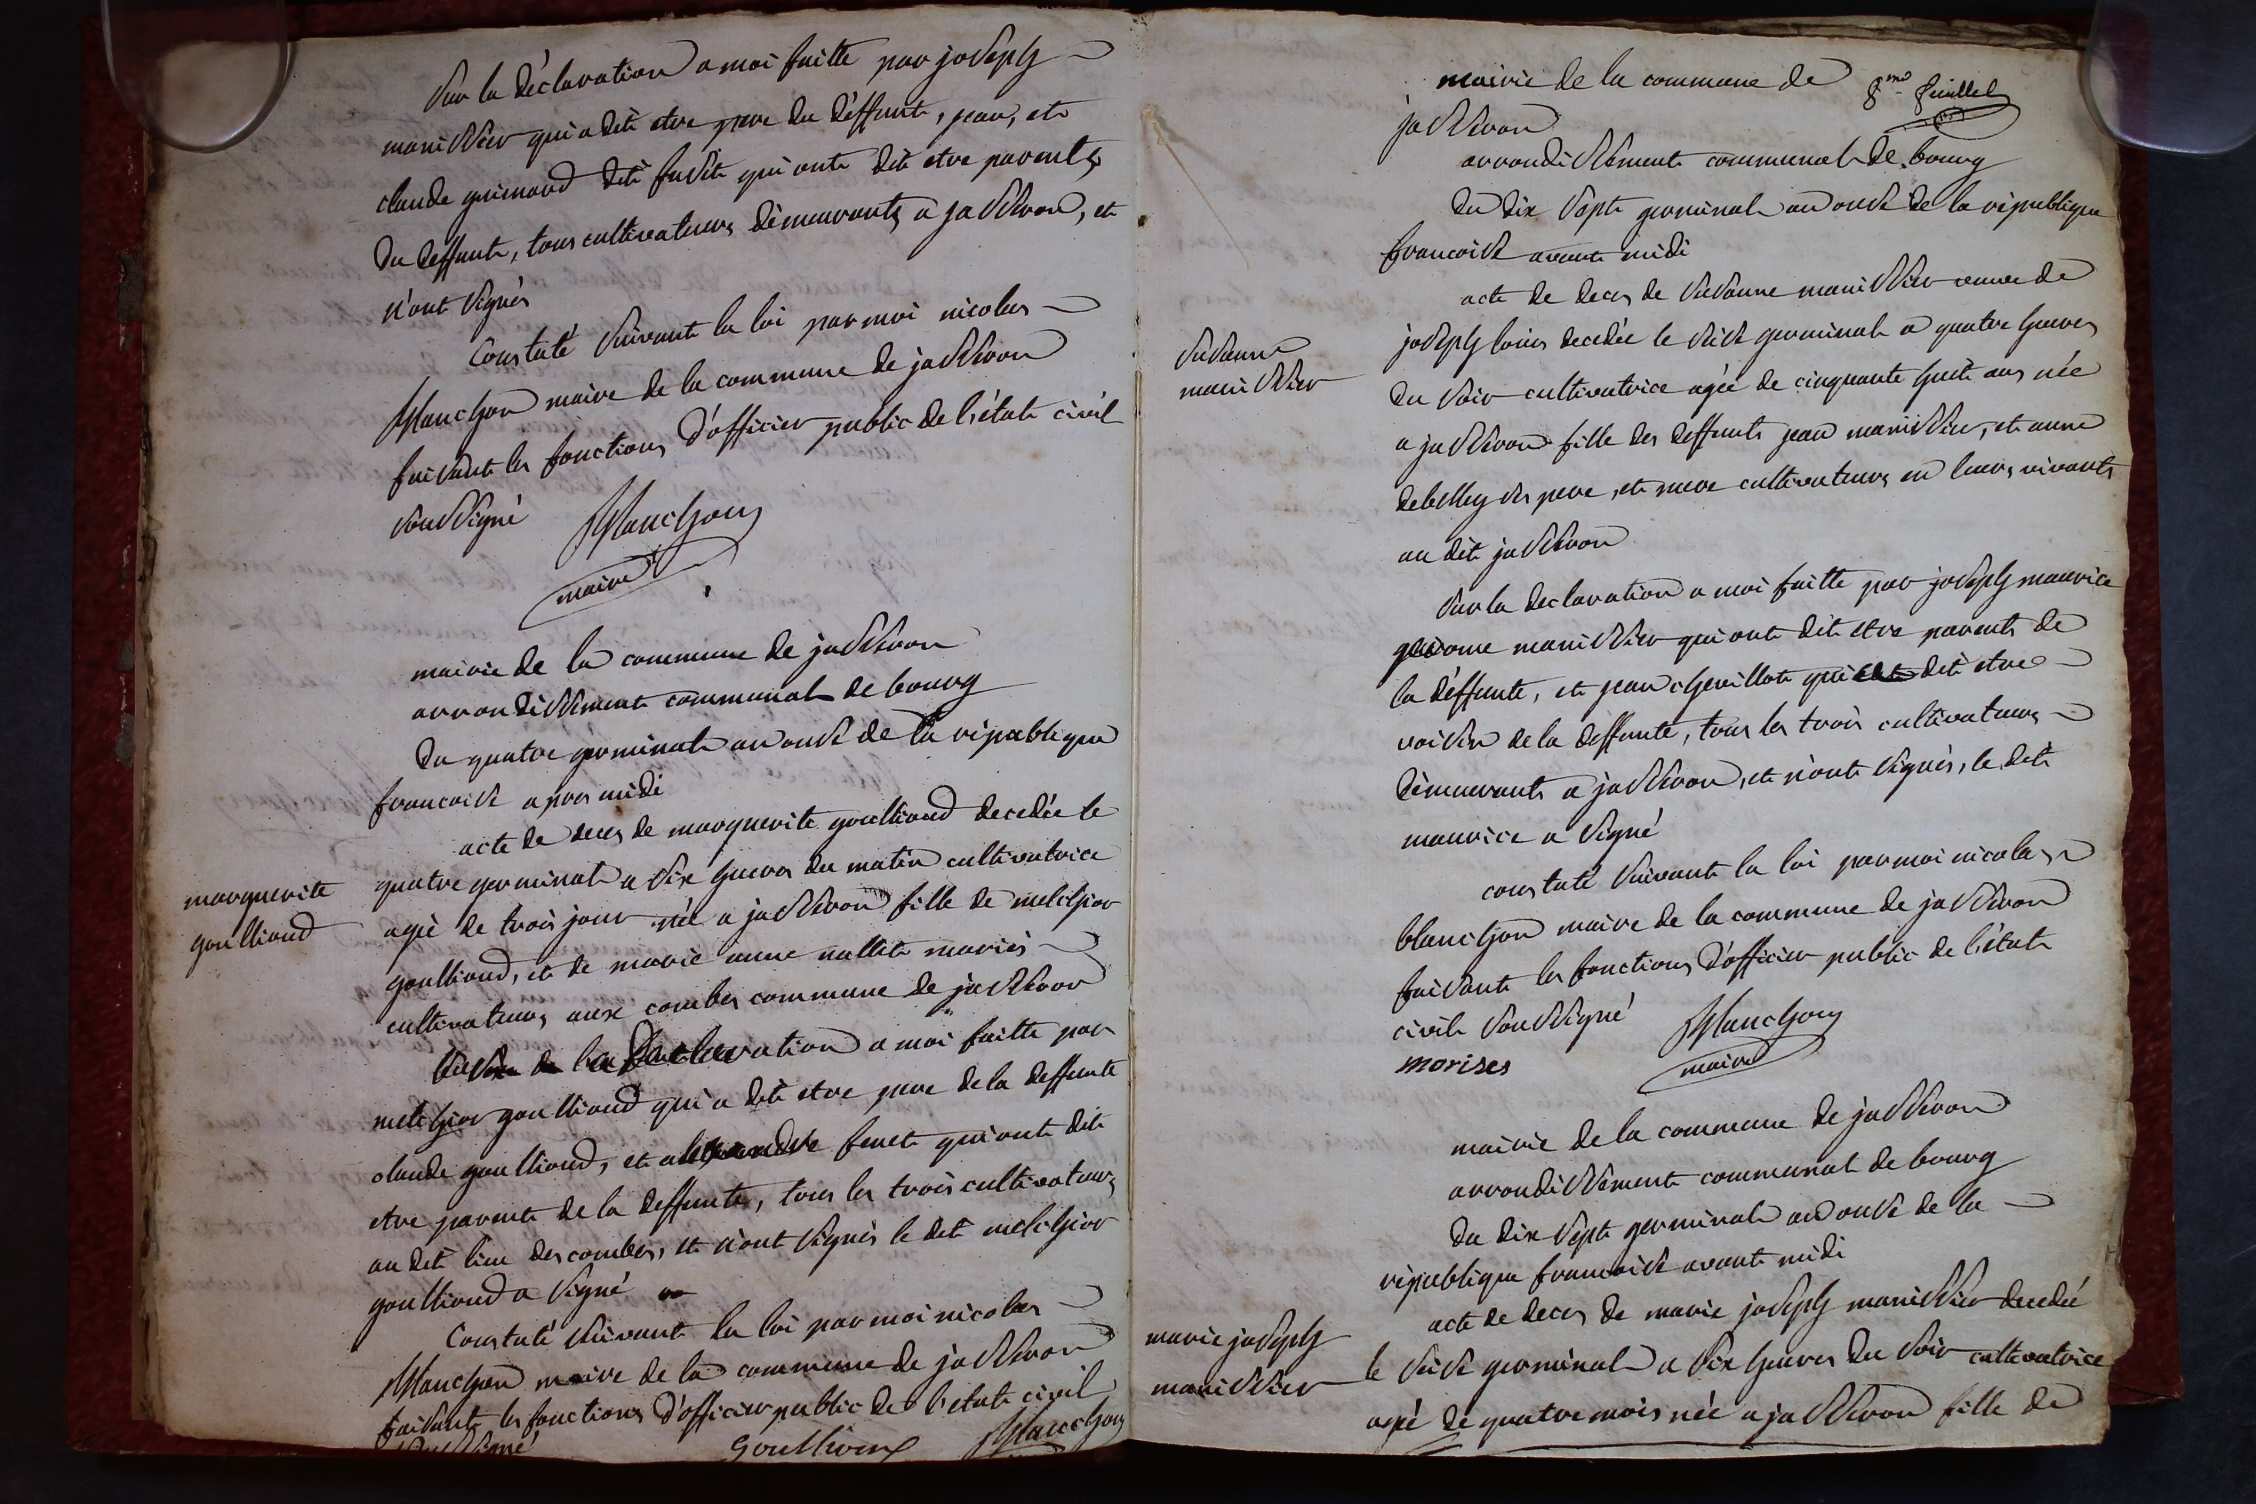 Sur la déclaration a moi faitte par joseph
manissier qui a dit etre pere du déffunt, jean, et
claude guimaud dit qui ont dit etre parents
du deffunt, tous cultivateurs démeurants a jasseron, et
n'ont signés
Constaté suivant la loi par moi nicolas
Blanchon maire de la commune de jasseron
faisant les fonctions d'officier public de l'état civil
soussigné Blanchon
maire
mairie de la commune de jasseron
arrondissement communal de bourg
Du quatre germinal an onse de la république
francoise apres midi
marguerite
goullioud
acte de deces de marguerite goullioud decedée le
quatre germinal a six heures du matin cultivatrice
agé de trois jour née a jasseron fille de melchior
goullioud, et de marie anne nallet mariés
cultivateurs aux combes commune de jasseron
la declaration a moi faitte par
melchior goullioud qui a dit etre pere de la deffunte
claude goullioud, et alexandre qui ont dit
etre parent de la deffunte, tous les trois cultivateurs
au dit lieu des combes, et n'ont signés le dit melchior
goullioud a signé
Constaté suivant la loi par moi nicolas
Blanchon maire de la commune de jasseron
faisant les fonctions d'officier public de l'état civil
soussigné Goullioux Blanchon
8me feuillet
mairie de la commune de
jasseron
arrondissement communal de bourg
Du dix sept germinal an onse de la république
francoise avant midi
susanne
manissier
acte de deces de susanne manissier veuve de
joseph decedée le seise germinal a quatre heures
du soir cultivatrice agée de cinquante huit ans née
a jasseron fille des deffunts jean manissier, et anne
debelley ses pere, et mere cultivateurs en leurs vivants
au dit jasseron
Sur la declaration a moi faitte par joseph maurice
manissier qui ont dit etre parents de
la déffunte, et jean chevillot qui dit etre
voisin de la deffunte, tous les trois cultivateurs
démeurants a jasseron, et n'ont signés, le dit
maurice a signé
constaté suivant la loi par moi nicolas
blanchon maire de la commune de jasseron
faisant les fonctions d'officier public de l'état
civil soussigné Blanchon
morises maire
mairie de la commune de jasseron
arrondissement communal de bourg
Du dix sept germinal an onse de la
république francoise avant midi
marie joseph
manissier
acte de deces de marie joseph manissier decedée
le seise germinal a six heures du soir cultivatrice
agé de quatre mois née a jasseron fille de